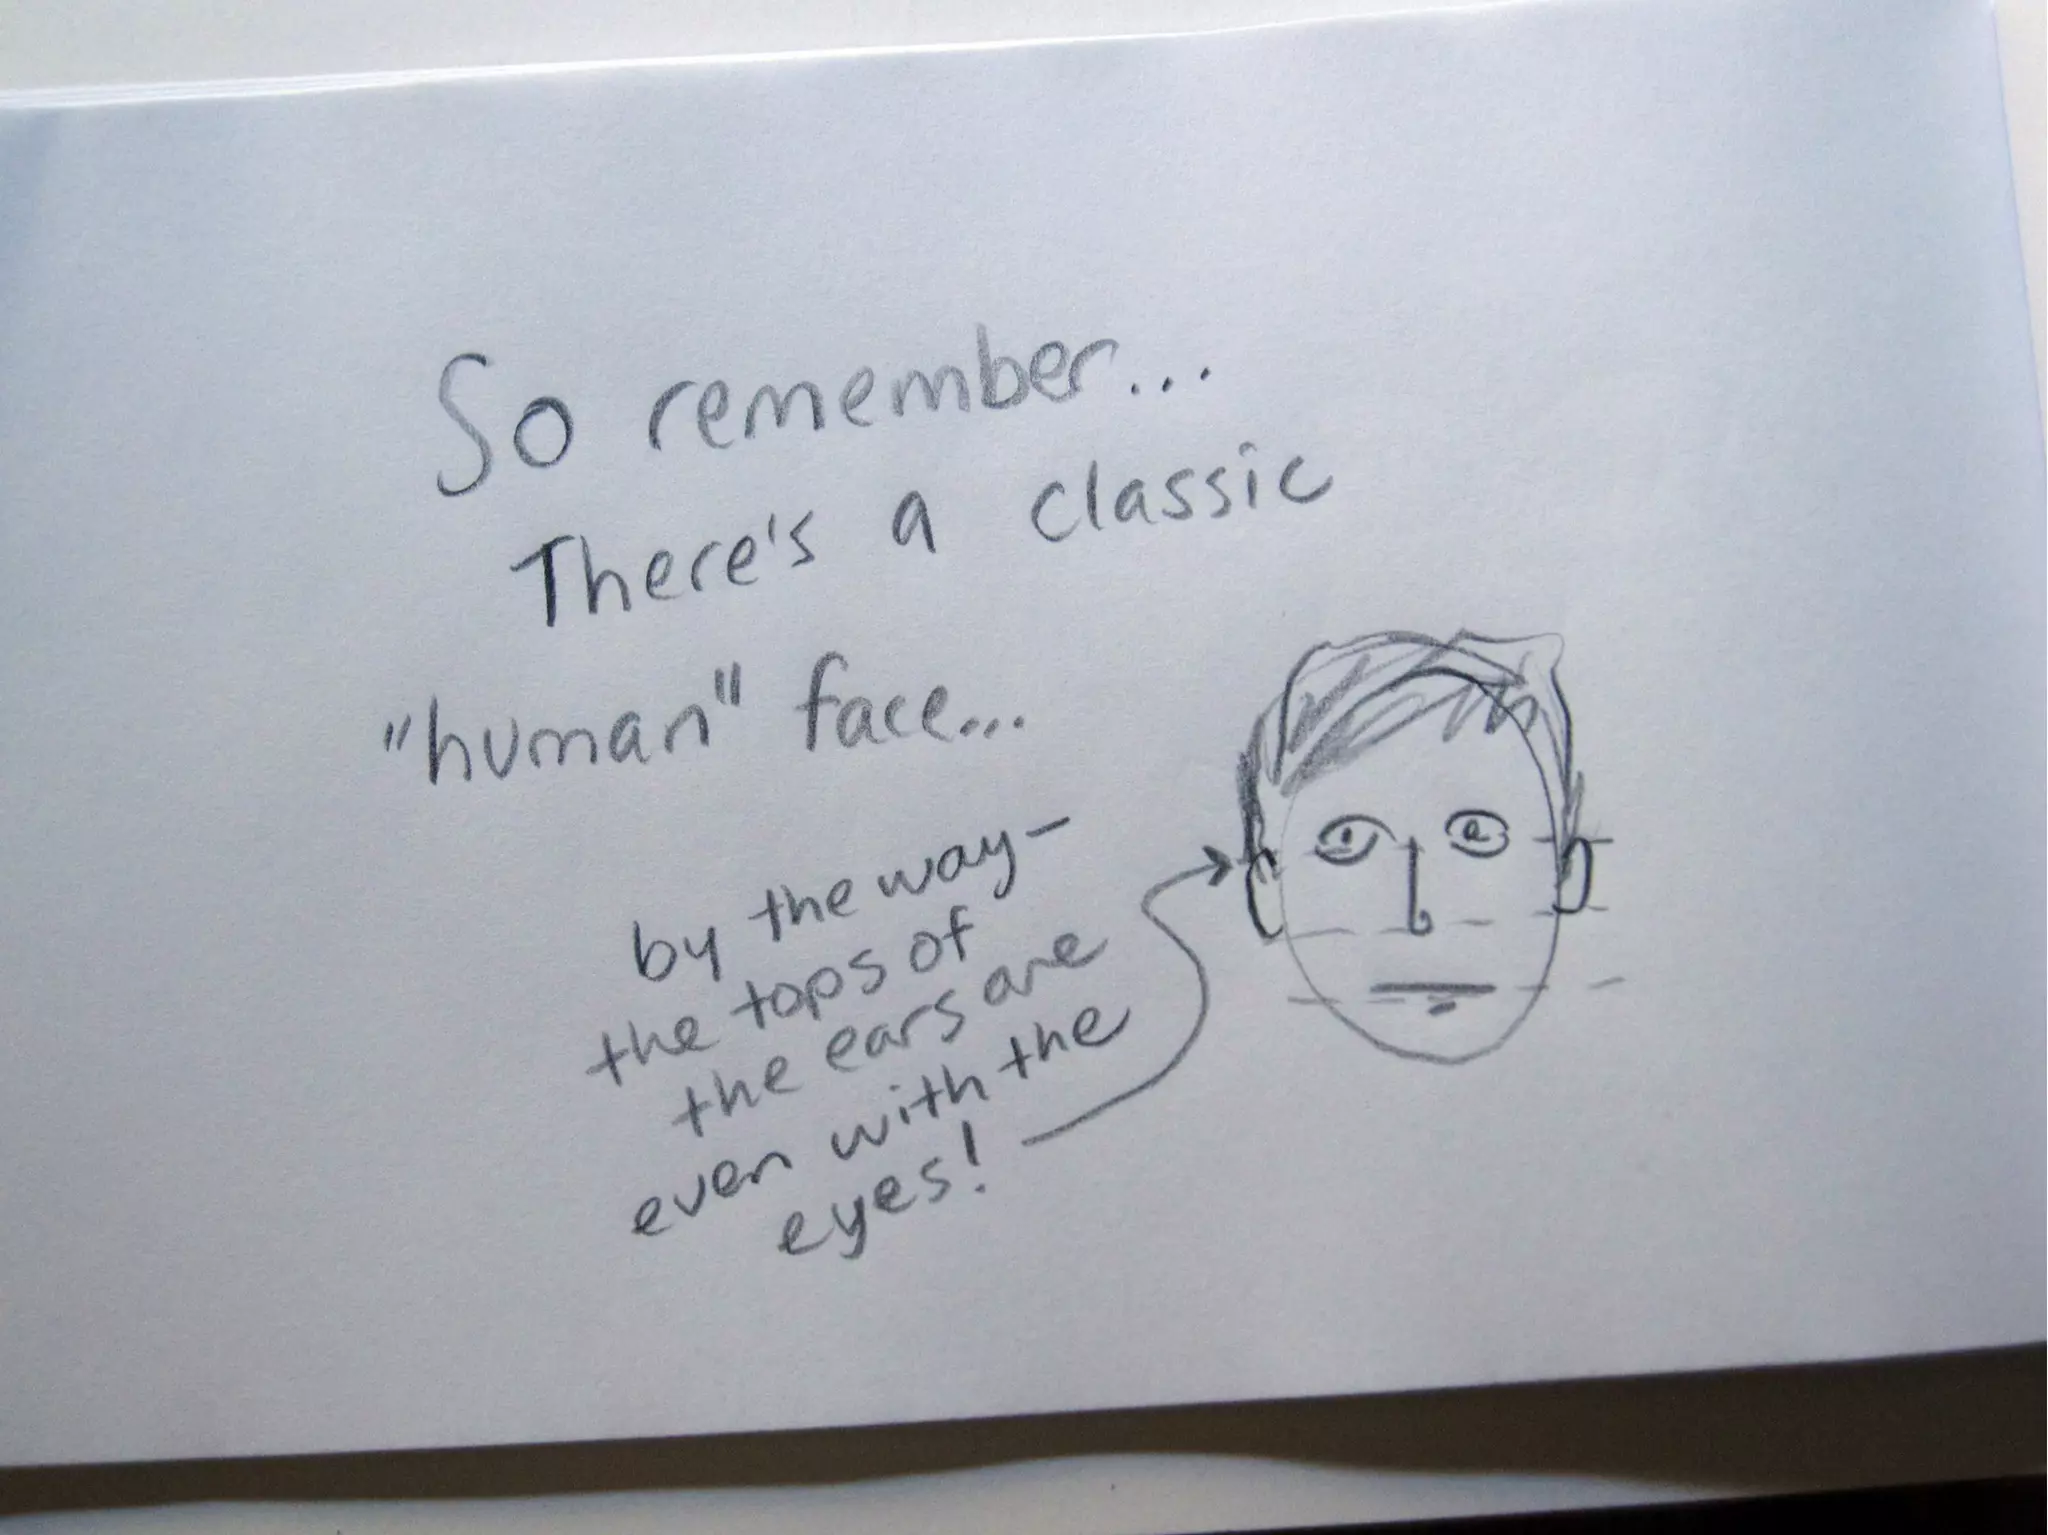 So remember...
There's a classic
"human" face...
by the way-
the tops of
the ears are
even with the
eyes!